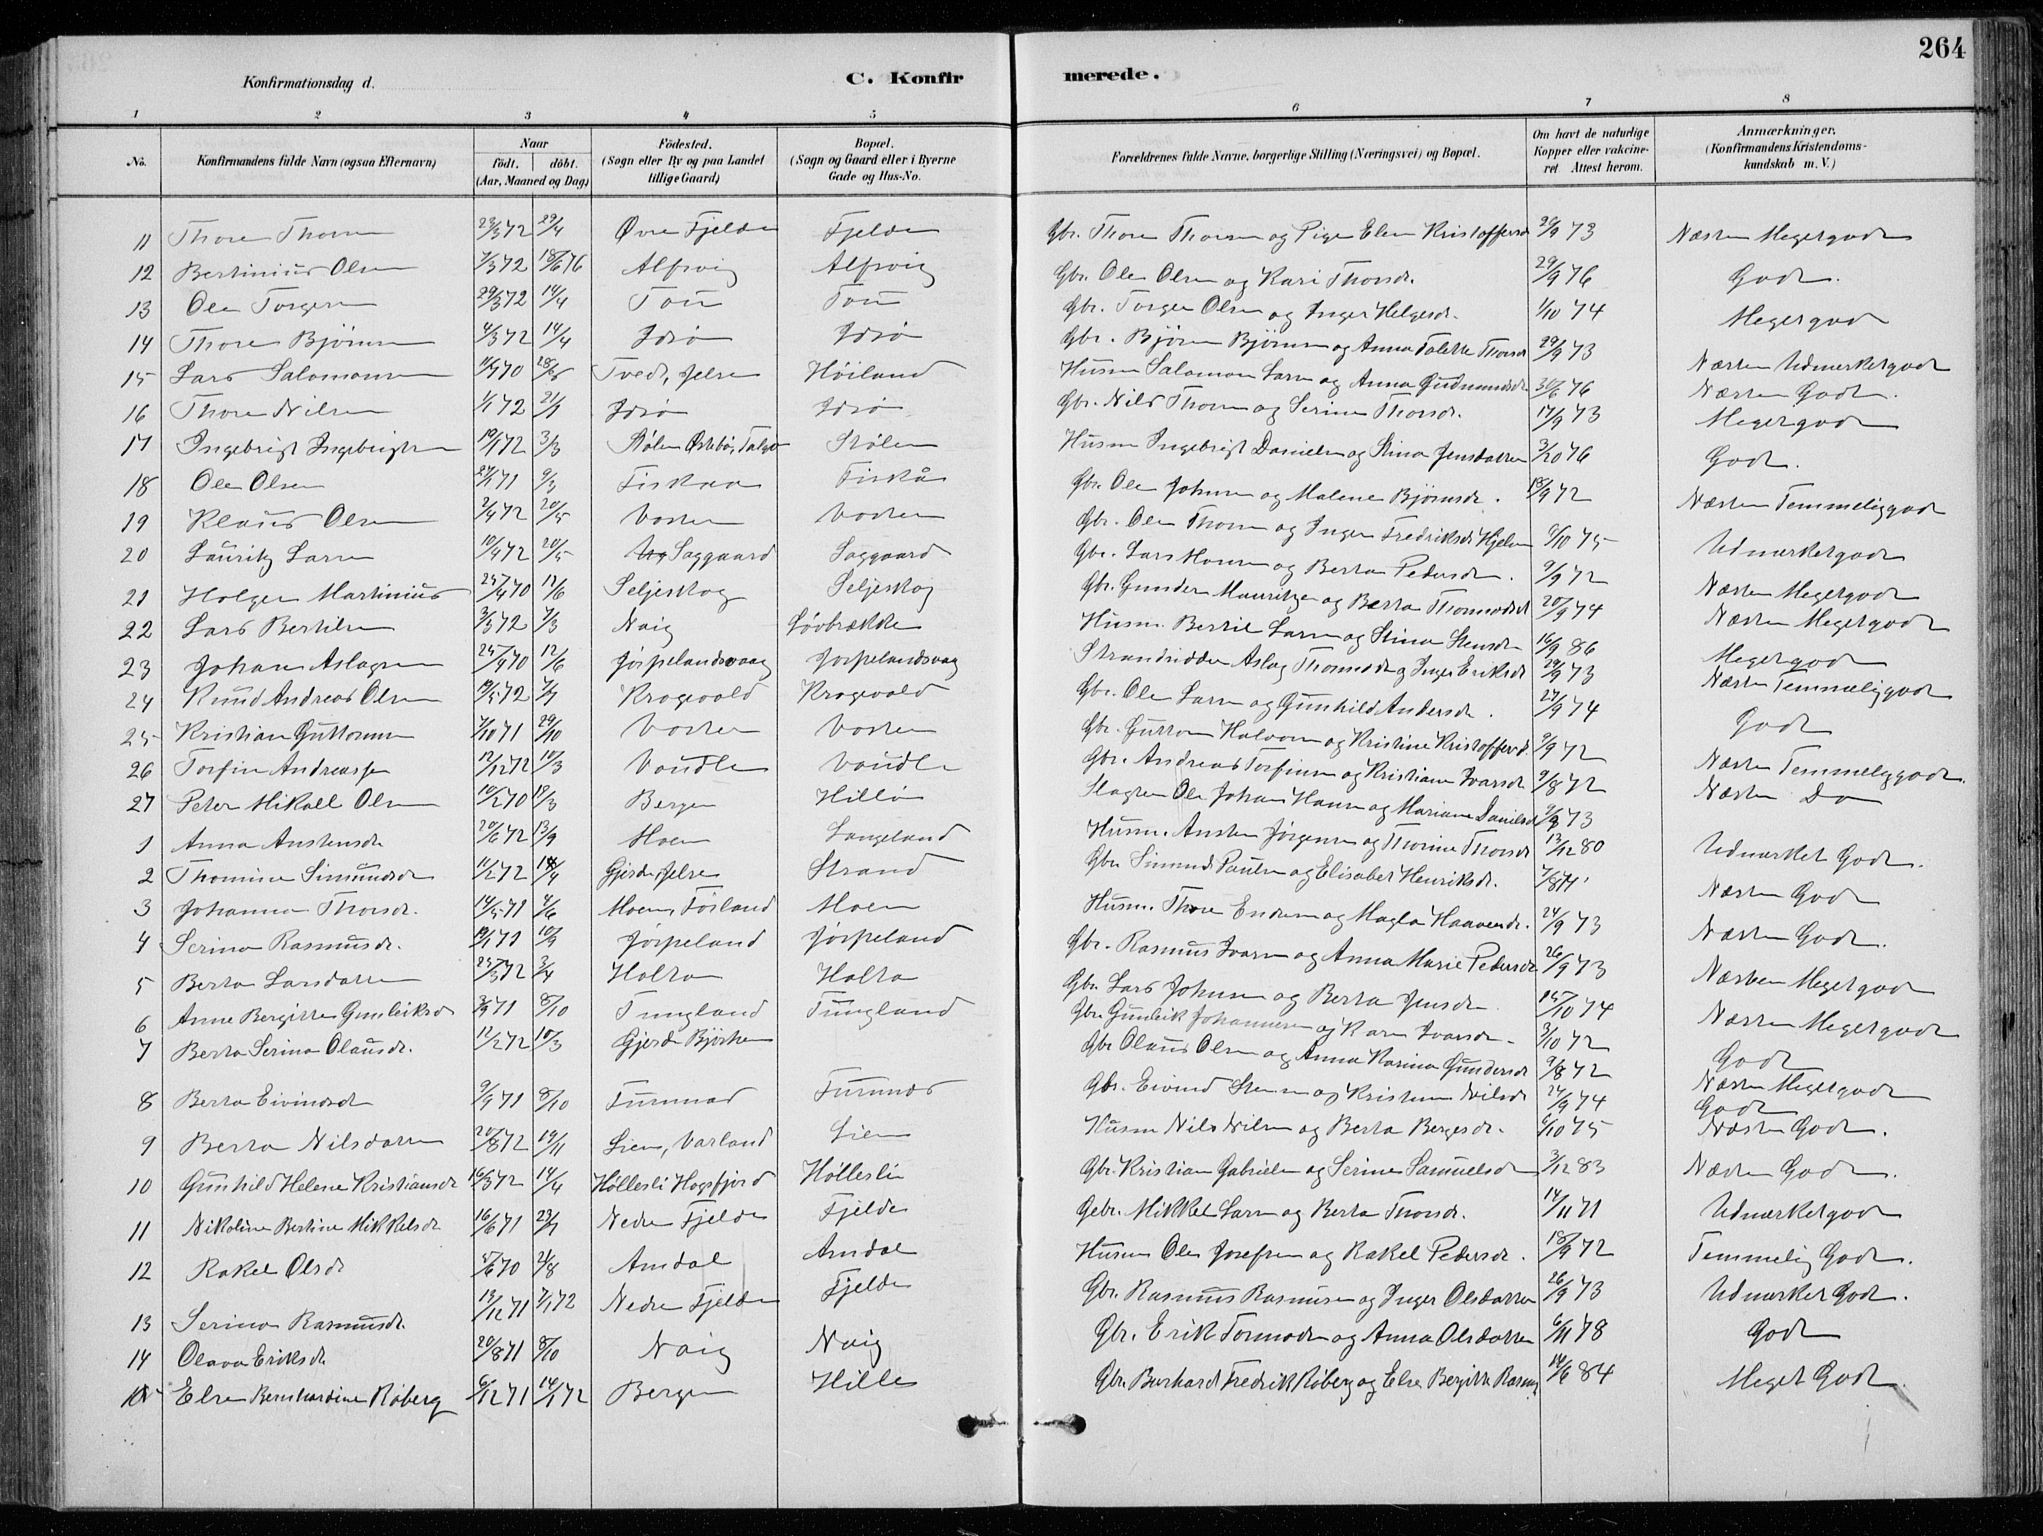 264
Konfirmationsdag d.
C. Konfirmerede.
1 2 3 4 5 6 7 8
No. Konfirmandens fulde Navn (ogsaa Efternavn) Naar födt. döbt. (Aar, Maaned og Dag) Födested. (Sogn eller By og paa Landet tillige Gaard) Bopæl. (Sogn og Gaard eller i Byerne Gade og Hus-No. Forældrenes fulde Navne, borgerlige Stilling (Næringsvei) og Bopæl. Om havt de naturlige Kopper eller vakcineret Attest herom. Anmærkninger. (Konfirmandens Kristendomskundskab m. V.)
11 Thore Thorsen 23/3 72 29/4 Øvre Fjelde Fjelde Gbr. Thore Thorsen og Pige Elen Kristoffersd 73 Næsten Megetgodt
12 Bertinius Olsen 7/3 72 18/6 76 Alfsvig Alfsvig Gbr. Ole Olsen og Kari Thorsdr. 29/9 76 Godt.
13 Ole Torgersen 29/3 72 14/4 Tou Tou Gbr. Torger Olsen og Inger Helgesdr. 1/10 74 Megetgodt
14 Thore Bjørnsen 4/3 72 14/4 Idsø Idsø Gbr. Bjørn Bjørnsen og Anna Tolette Thorsdr 29/9 73 Næsten Udmærketgodt
15 Lars Salomonsen 70 Tved, Jelse Høiland Husm Salomon Larsen og Anna Gudmundsdr 30/6 76 Næsten Godt.
16 Thore Nilsen 1/1 72 21/1 Idsø Idsø Gbr. Nils Thorsen og Serine Thorsdr. 17/9 73 Megetgodt
17 Ingebrigt Ingebrigtsen 19/1 72 3/3 Stølen Østebø, Talgø Stølen Husm Ingebrigt Danielsen og Stina Jensdatter 3/10 76 Godt.
18 Ole Olsen 71 9/3 Fiskaa Fiskå Gbr. Ole Johnsen og Malene Bjørnsdr. 18/9 72 Næsten Temmeliggodt
19 Klaus Olsen 2/4 72 20/5 Vosten Vosten Gbr. Ole Thorsen og Inger Fredriksdr Hjelm 9/10 75 Udmærketgodt
20 Lauritz Larsen 10/4 72 20/5 Saggaard Saggaard Gbr. Lars Hansen og Berta Pedersdr. 9/9 72 Næsten Megetgodt
21 Holger Martinius 70 12/6 Seljeskog Seljeskog Gbr. Gunder Mauritzen og Berta Thormodsdr 20/9 74 Næsten Megetgodt
22 Lars Bertilsen 3/3 72 7/3 Naig Løvbrække Husm. Bertil Larsen og Stina Stensdr 16/9 86 Megetgodt
23 Johan Aslagsen 70 12/6 Jørpelandsvaag Jørpelandsvag Strandsidder Aslag Thormodsen og Inger Eriksdr 29/9 73 Næsten Temmeliggodt
24 Knud Andreas Olsen 72 7/7 Krogevold Krogevold Gbr. Ole Larsen og Gunhild Andersdr. 27/9 74 Godt
25 Kristian Guttormsen 7/10 71 29/10 Vosten Vosten Gbr. Guttorm Halvorsen og Kristine Kristoffersd. 9/9 72 Næsten Temmeliggodt
26 Torfin Andreassen 12/12 72 10/3 Voudle Voudle Gbr. Andreas Torfinsen og Kristiane Ivarsdr 9/8 72 Næsten Do
27 Peter Mikall Olsen 10/2 70 18/3 Bergen Hille Slagter Ole Johan Hansen og Mariane Danielsd 73
1 Anna Austensdr 20/6 72 13/9 Moen Langeland Husm. Austen Jørgensen og Thorine Thorsdr 13/12 80 Udmærket Godt.
2 Thomine Simundsdr 11/2 72 14/4 Gjerde, Jelse Strand Gbr Simund Paulsen og Elisabet Henriksdr. 7/8 71 Næsten Godt
3 Johanna Thorsdr. 14/5 71 4/6 Moen, Fosland Moen Husm. Thore Endresen og Magla Haavardsdr. 24/9 73 Næsten Godt.
4 Serina Rasmusdr. 19/1 71 10/9 Jørpeland Jørpeland Gbr. Rasmus Ivarsen og Anna Marie Pedersdr 26/9 73 Næsten Megetgodt
5 Berta Larsdatter 25/3 72 3/4 Holta Holta Gbr. Lars Johnsen og Berta Jensdr. 15/10 74 Næsten Megetgodt
6 Anne Bergitte Gunleiksdr 71 8/10 Tungland Tungland Gbr. Gunleik Johannesen og Karen Ivarsdr. 3/10 72 Godt
7 Berta Serina Olausdr. 11/2 72 10/3 Gjerde Bjørheim Gbr Olaus Olsen og Anna Karina Gundersdr 9/8 72 Næsten Megetgodt
8 Berta Eivindsdr 9/9 71 8/10 Furunæs Furunæs Gbr. Eivind Stensen og Kristine Nilsdr 24/9 74 Godt
9 Berta Nilsdatter 20/8 72 19/11 Lien, Vatland Lien Husm Nils Nilsen og Berta Bergesdr. 6/10 75 Næsten Godt.
10 Gunhild Helene Kristiansdr 16/3 72 14/4 Høllesli Høgsfjord Høllesli Gbr. Kristian Gabrielsen og Serine Samuelsdr 3/12 83 Næsten Godt.
11 Nikoline Bertine Mikkelsdr 16/6 71 23/7 Nedre Fjelde Fjelde Gebr. Mikkel Larsen og Berta Thorsdr. 14/11 71 Udmærketgodt
12 Rakel Olsdr 5/6 70 2/8 Amdal Amdal Husm Ole Josefsen og Rakel Pedersdr. 18/9 72 Temmelig Godt.
13 Serina Rasmusdr 13/12 71 7/1 72 Nedre Fjelde Fjelde Gbr. Rasmus Rasmussen og Inger Olsdatter 26/9 73 Udmærket Godt.
14 Olava Eriksdr 20/8 71 8/10 Naig Naig Gbr. Erik Tormodsen og Anna Olsdatter 6/11 78 Godt
15 Else Bernhardine Røberg 6/12 71 14/1 72 Bergen Hille Gbr Burhard Fredrik Røberg og Else Bergitte Rasm 14/6 84 Meget Godt.